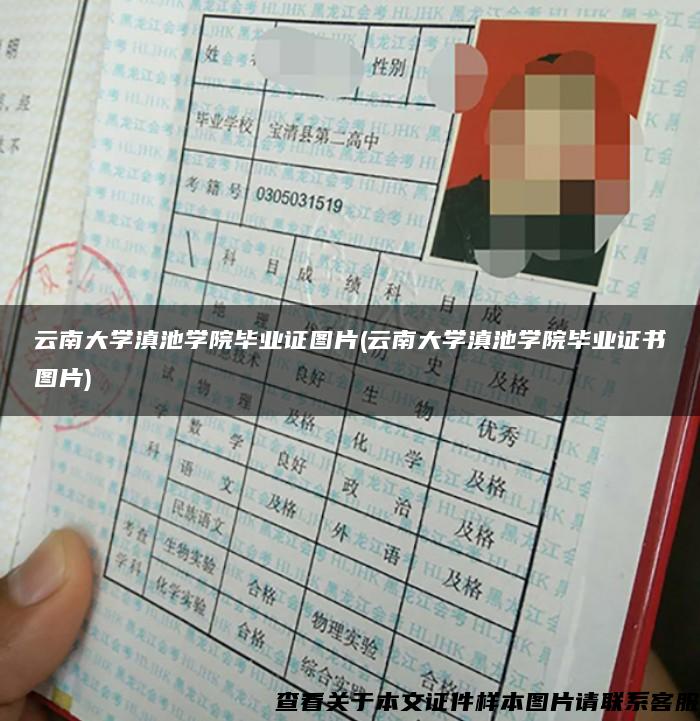 明
经
不
姓
性别
毕业学校 宝清县第二高中
考籍号 0305031519
科目 成绩 科目 成绩
地理 历史 及格
云南大学滇池学院毕业证图片(云南大学滇池学院毕业证书
图片)
信息技术 良好 生物 优秀
考试学科
物理 及格 化学 及格
数学 良好 政治 及格
语文 及格 外语 及格
民族语文
考查学科
生物实验 合格 物理实验 合格
化学实验 合格 综合实
黑龙江会考 HLJHK
查看关于本文证件样本图片请联系客服